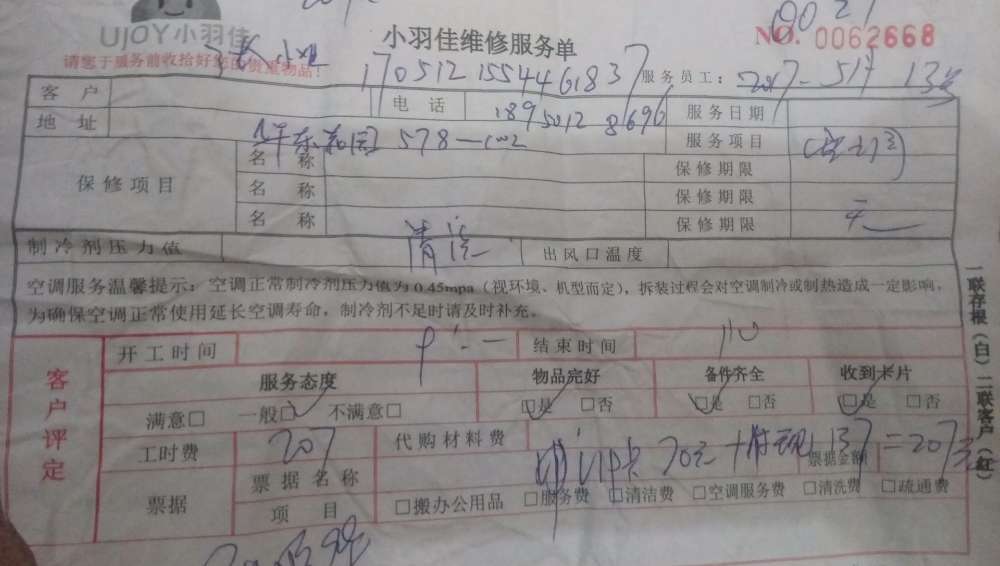 UJOY小羽佳
小羽佳维修服务单
NO. 0062668
请您于服务前收拾好您的贵重物品！
1705121554461837
服务员工：
客户
电话
服务日期
地址
578
服务项目
保修项目
名称
保修期限
名称
保修期限
名称
保修期限
制冷剂压力值
清洗
出风口温度
空调服务温馨提示：空调正常制冷剂压力值为0.45mpa（视环境、机型而定），拆装过程会对空调制冷或制热造成一定影响，
为确保空调正常使用延长空调寿命，制冷剂不足时请及时补充。
客户评定
开工时间
结束时间
服务态度
物品完好
备件齐全
收到卡片
满意□ 一般□ 不满意□
□是 □否
□是 □否
□是 □否
工时费
207
代购材料费
70元+ 137=207元
票据
票据名称
票据金额
项目
□搬办公用品 □服务费 □清洁费 □空调服务费 □清洗费 □疏通费
一联存根（白）二联客户（红）